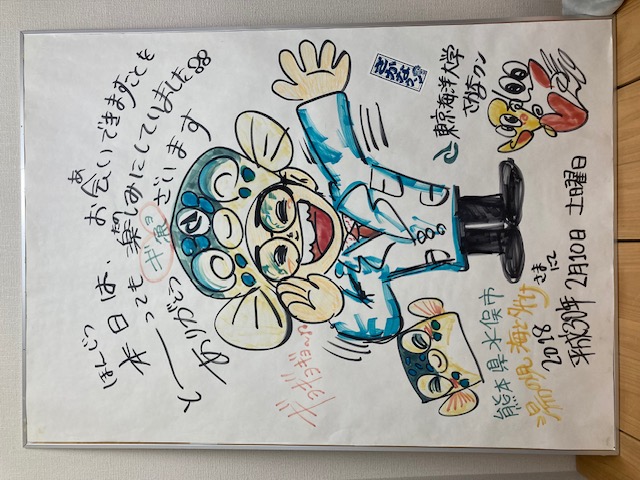 ほんじつ
本日は、お会いできますことを
あ
とーっても楽しみにしていました
ありがとう
ざいます
さかなクン
東京海洋大学
さかなクン
熊本県水俣市
湯の児 海と夕やけ
さまにて
2018
平成30年 2月10日 土曜日